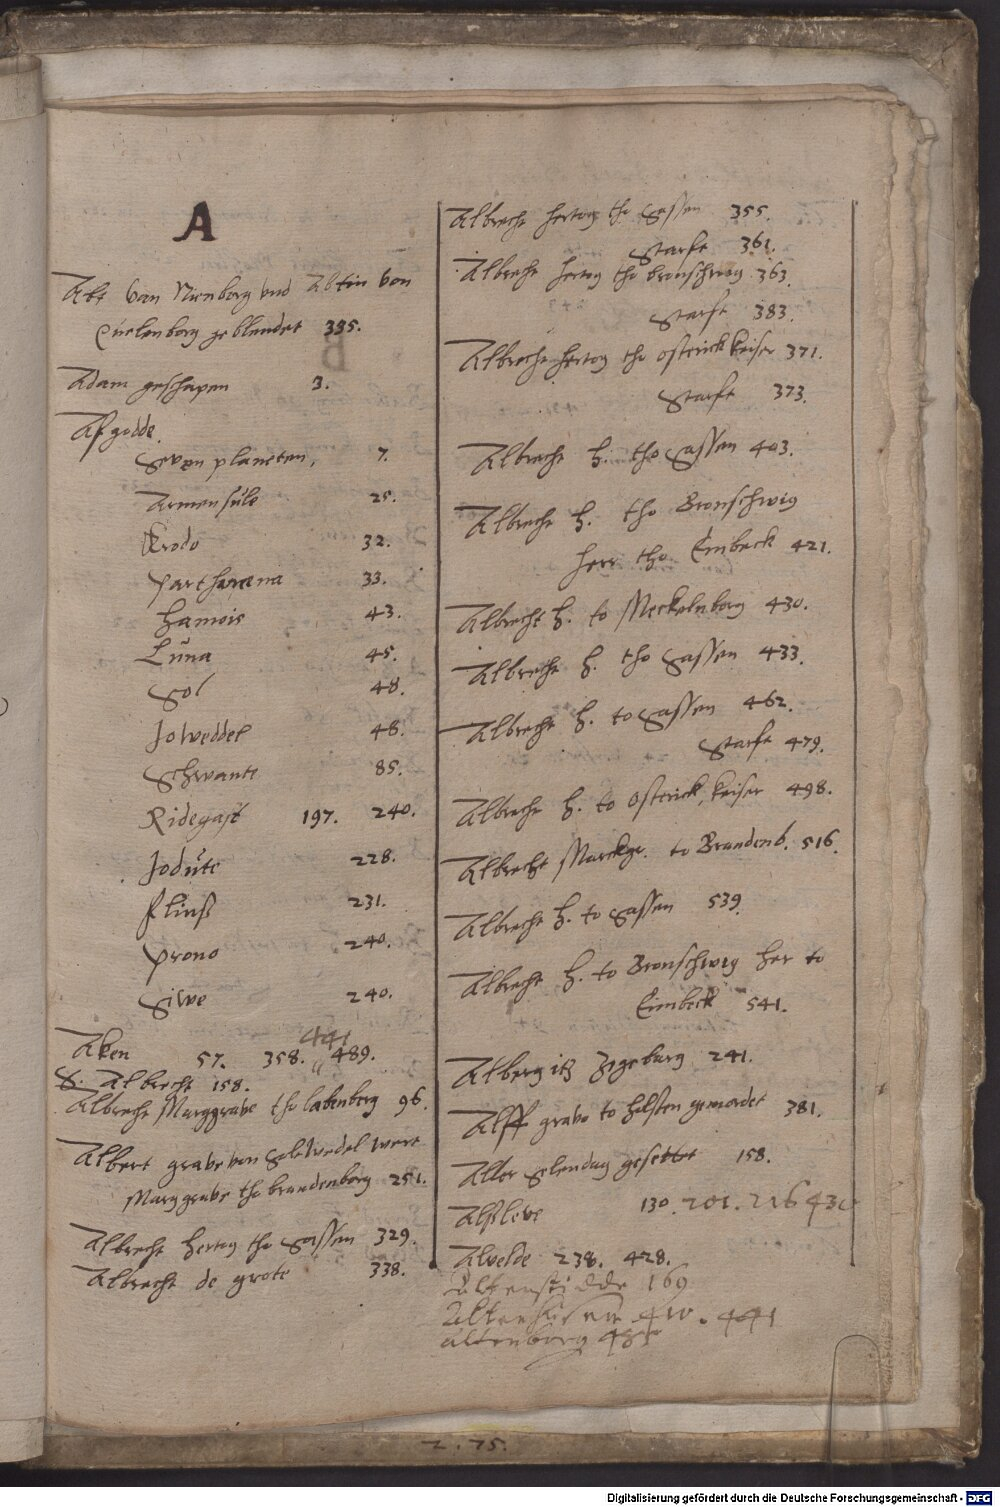 A
Abt van Nienborg vnd Abtin von
Quelenborg geblendet 335.
Adam geschapen 3.
Afgodde.
Seven planeten, 7.
Armensüle 25.
Krodo 32.
Parthaena 33.
Hamois 43.
Lüna 45.
Sol 48.
Joweddel 48.
Schwante 85.
Ridegast 197. 240.
Jodüte 228.
Flinß 231.
Prono 240.
Siwe 240.
441
Aken 57. 358. 489.
S. Albrecht 158.
Albrecht Marggrabe tho labenberg 96.
Albert grabe van Soltwedel wert
Marggrabe tho brandenborg 251.
Albrecht hertog tho Sassen 329.
Albrecht de grote 338.
Albrecht hertog tho Sassen 355.
Starft 361.
Albrecht hertog tho bronschwig 363.
Starft 383.
Albrecht hertog tho osterick keiser 371.
Starft 373.
Albrecht h. tho Sassen 403.
Albrecht h. tho Bronschwig
herr tho Einbeck 421.
Albrecht h. to Meckelnborg 430.
Albrecht h. tho Sassen 433.
Albrecht h. to Sassen 462.
Starft 479.
Albrecht h. to Osterick, keiser 498.
Albrecht Marckgr. to Brandenb. 516.
Albrecht h. to Sassen 539.
Albrecht h. to Bronschwig her to
Einbeck 541.
Alberg itz Segeburg 241.
Alff grabe to holsten gemordet 381.
Aller Selendag gesettet 158.
Alsleve 130. 201. 216 430
Alvelde 238. 428.
Altenstidde 169
Altenhusen 410. 441
Altenborg
2.75.